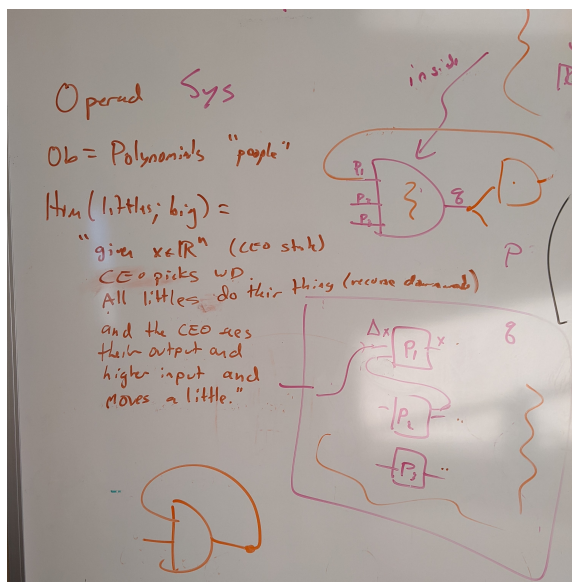 Operad Sys
Ob = Polynomials "people"
Hom(littles; big) =
"given x∈ℝⁿ (CEO state)
CEO picks WD.
All littles do their thing (recurse downward)
and the CEO sees
their output and
higher input and
moves a little."
inside
P₁
P₂
P₃
q
P
Δx
P₁
x
q
P₂
P₃